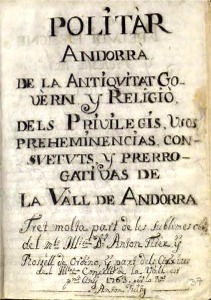 POLITÀR
ANDORRA
DE LA ANTIQVITAT GO
VERN y RELIGIÒ
DELS PRIVILEGIS, VSOS
PREHEMINENCIAS, CON
SVETVTS, Y PRERRO
GATIVAS DE
LA VALL DE ANDÒRRA
Tret molta part de les
del mt. Illtre. Dr. Anton Fiter, y
Rossell de Ordino, y part dels
del M. Iltre. Consell de la Vall
1763
Anton